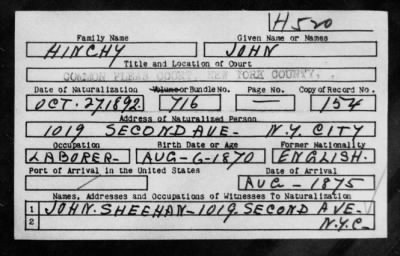 H520
Family Name Given Name or Names
HINCHY JOHN
Title and Location of Court
COMMON PLEAS COURT, NEW YORK COUNTY, .
Date of Naturalization Volume or Bundle No. Page No. Copy of Record No.
OCT. 27, 1892. 716 — 154
Address of Naturalized Person
1019 SECOND AVE- N.Y. CITY
Occupation Birth Date or Age Former Nationality
LABORER- AUG-6-1870 ENGLISH.
Port of Arrival in the United States Date of Arrival
AUG- 1875
Names, Addresses and Occupations of Witnesses To Naturalization
1 JOHN. SHEEHAN-1019. SECOND AVE-
2 N.Y.C-